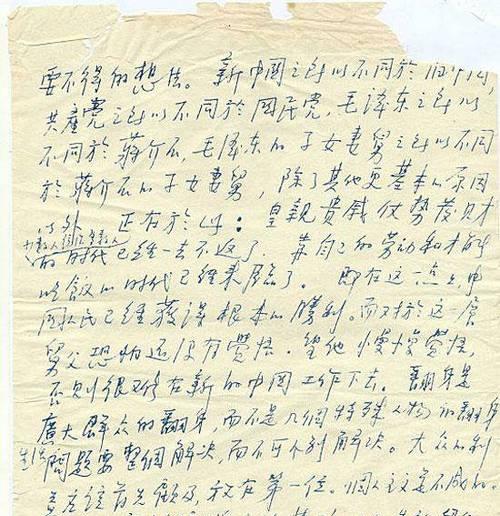 要不得的想法。新中國之所以不同於旧中國，
共產党之所以不同於國民党，毛泽东之所以
不同於蔣介石，毛泽东的子女妻舅之所以不同
於蔣介石的子女妻舅，除了其他更基本的原因
以外，正在於此：皇親貴戚仗势發财
少数人统治多数人
的时代已經一去不返了，靠自己的劳动和才能
吃飯的时代已經来臨了。即在这一点上，中
国人民已經獲得根本的勝利。而对於这一層
舅父恐怕还没有覺悟。望他慢慢覺悟，
否则很难在新的中國工作下去。翻身是
廣大群众的翻身，而不是几個特殊人物的翻身
生活問題要整個解决，而不可个别解决。大众的利
益应該首先顧及，放在第一位。個人主义是不成的。